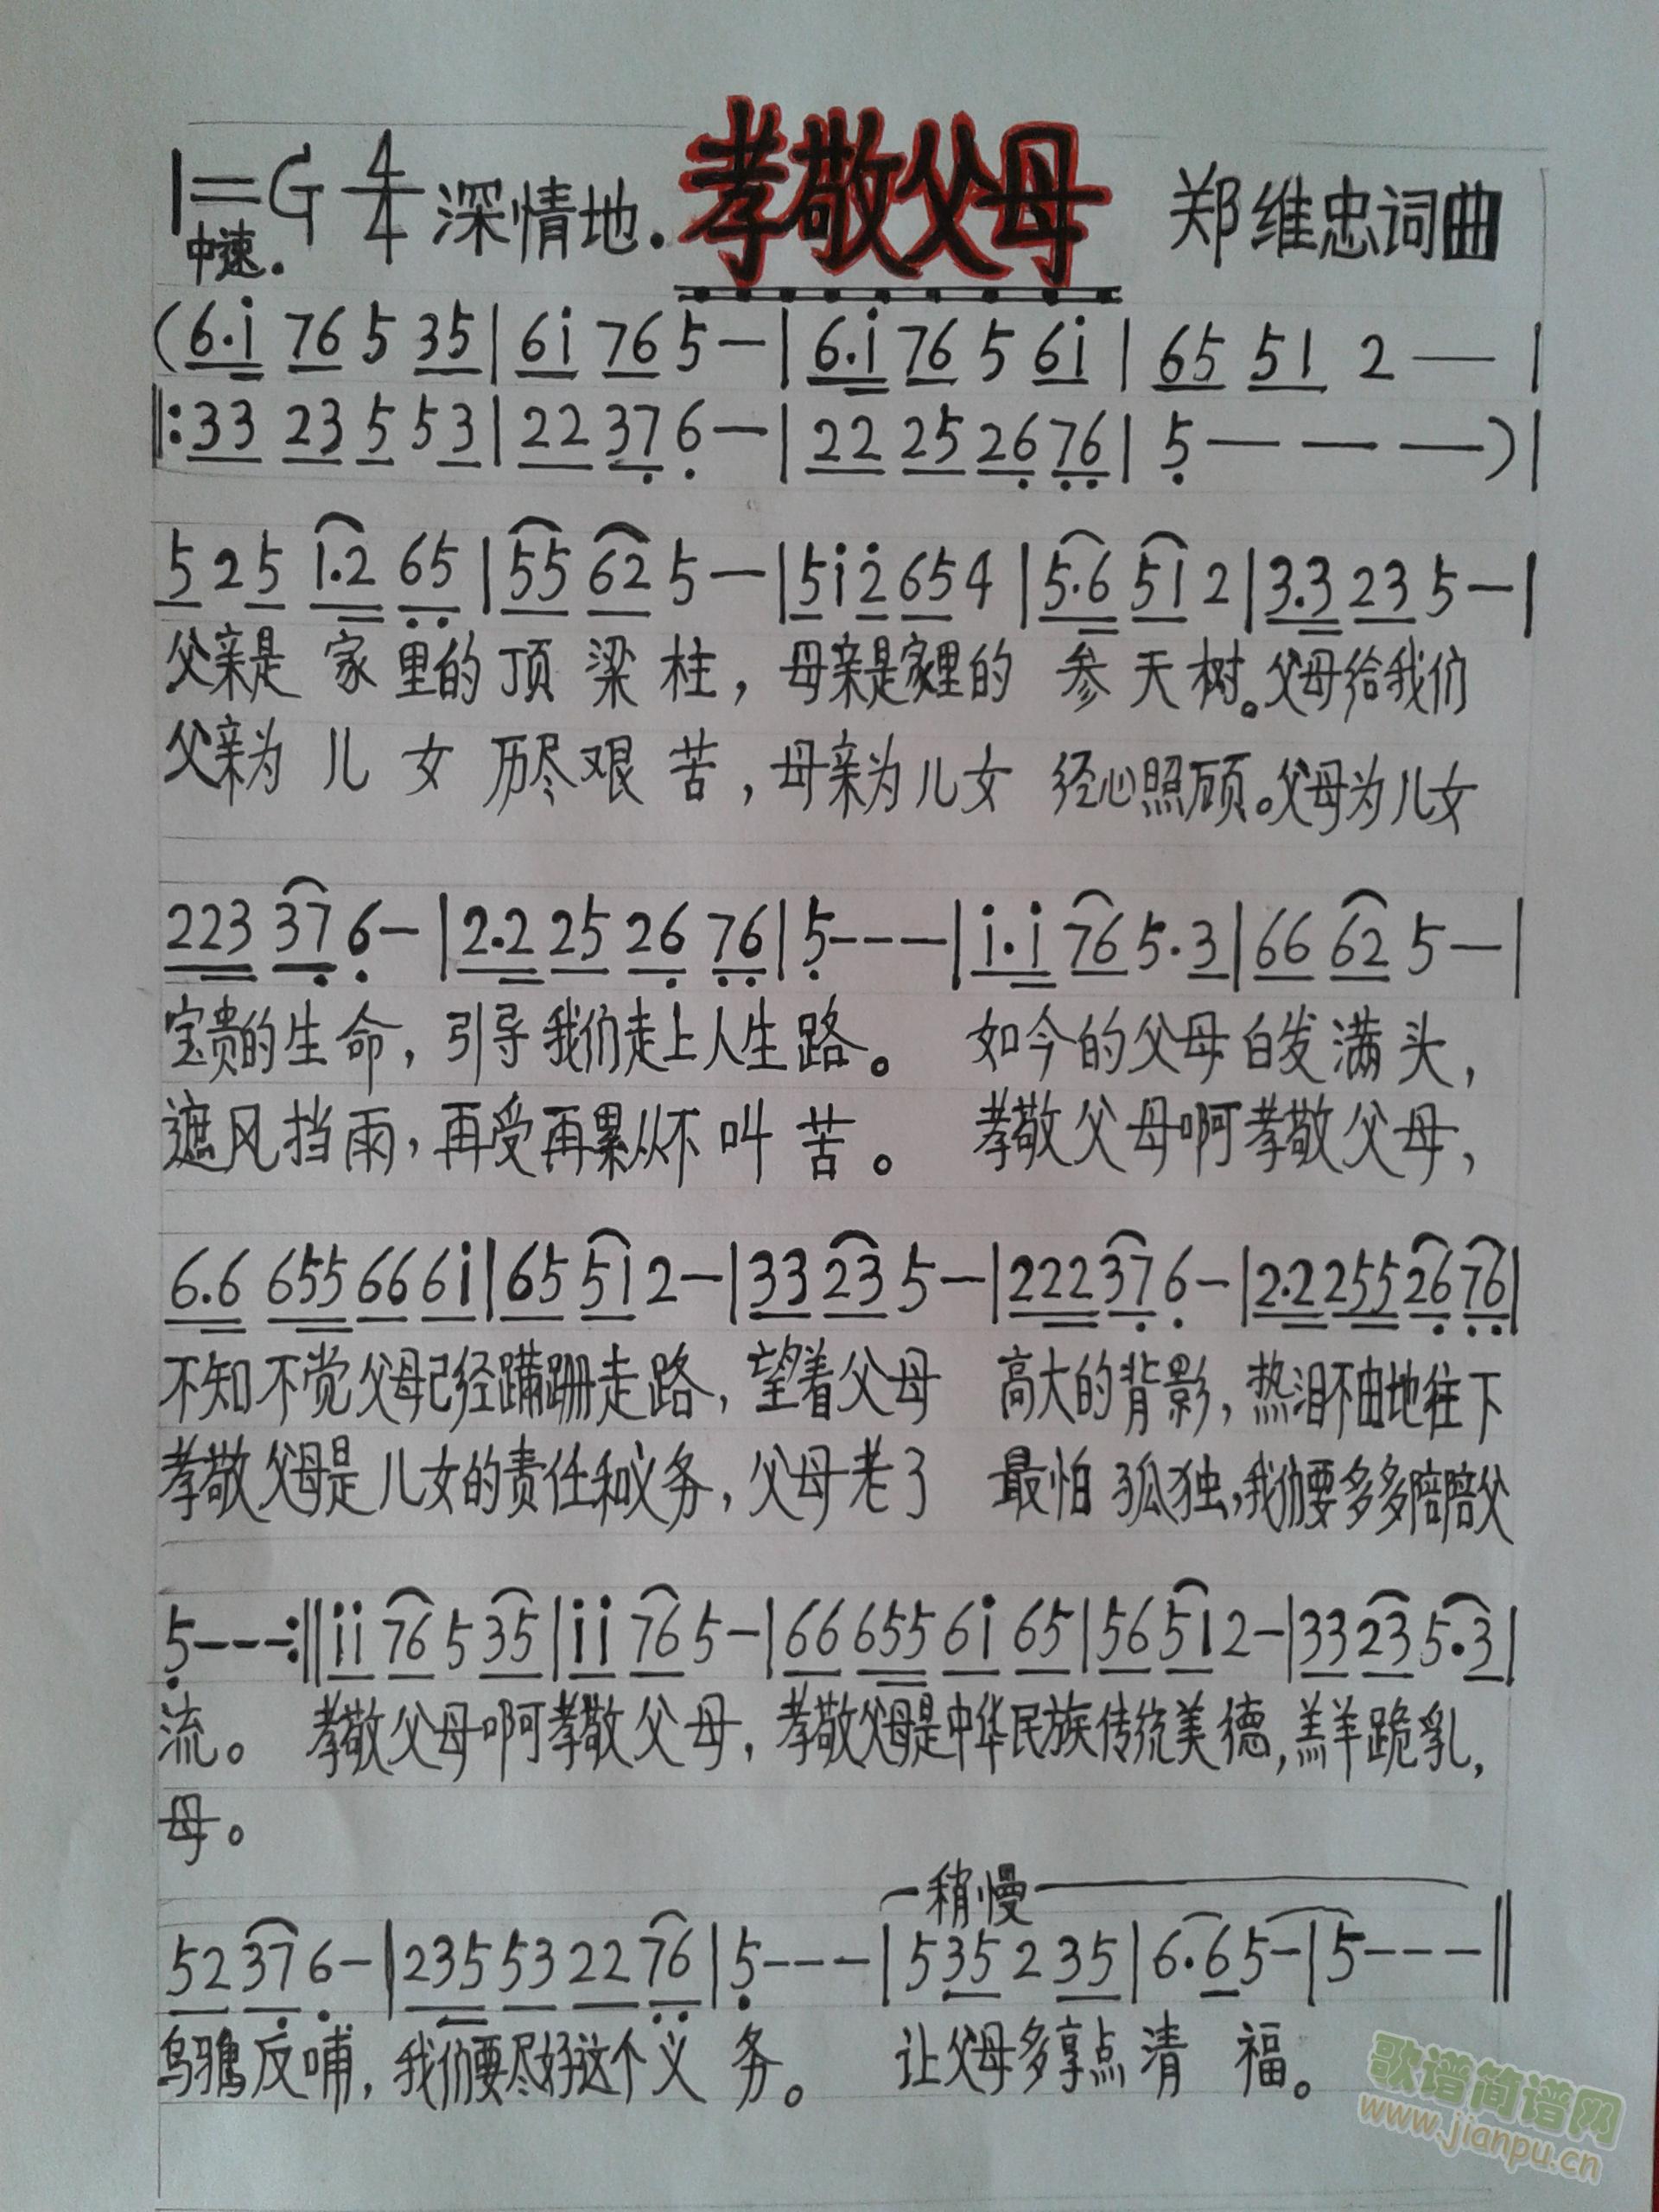 1=G 4/4 深情地. 孝敬父母 郑维忠词曲
中速.
(6.i 76 5 35|6i 76 5—|6.i 76 5 6i|65 51 2—|
‖:33 23 5 53|22 37 6—|22 25 26 76|5———)|
525 1.2 65|55 62 5—|5i2 654|5.6 51 2|3.3 23 5—|
父亲是 家 里的 顶 梁 柱,母亲是家里的 参 天 树。父母给我们
父亲为 儿 女 历尽艰 苦,母亲为儿女 经心照顾。父母为儿女
223 37 6—|2.2 25 26 76|5---|i.i 76 5.3|66 62 5—|
宝贵的生命,引导我们走上人生路。 如今的父母白发满头,
遮风挡雨,再受再累从不叫苦。 孝敬父母啊孝敬父母,
6.6 655 66 6i|65 51 2—|33 23 5—|222 37 6—|2.2 255 26 76|
不知不觉父母已经蹒跚走路,望着父母 高大的背影,热泪不由地往下
孝敬父母是儿女的责任和义务,父母老了 最怕孤独,我们要多多陪陪父
5---:‖ii 76 5 35|ii 76 5—|66 655 6i 65|56 51 2—|33 23 5.3|
流。 孝敬父母啊孝敬父母,孝敬父母是中华民族传统美德,羔羊跪乳,
母。
稍慢
52 37 6—|235 53 22 76|5---|5 35 2 35|6.6 5—|5---‖
乌鸦反哺,我们要尽好这个义务。 让父母多享点清 福。
歌谱简谱网
www.jianpu.cn